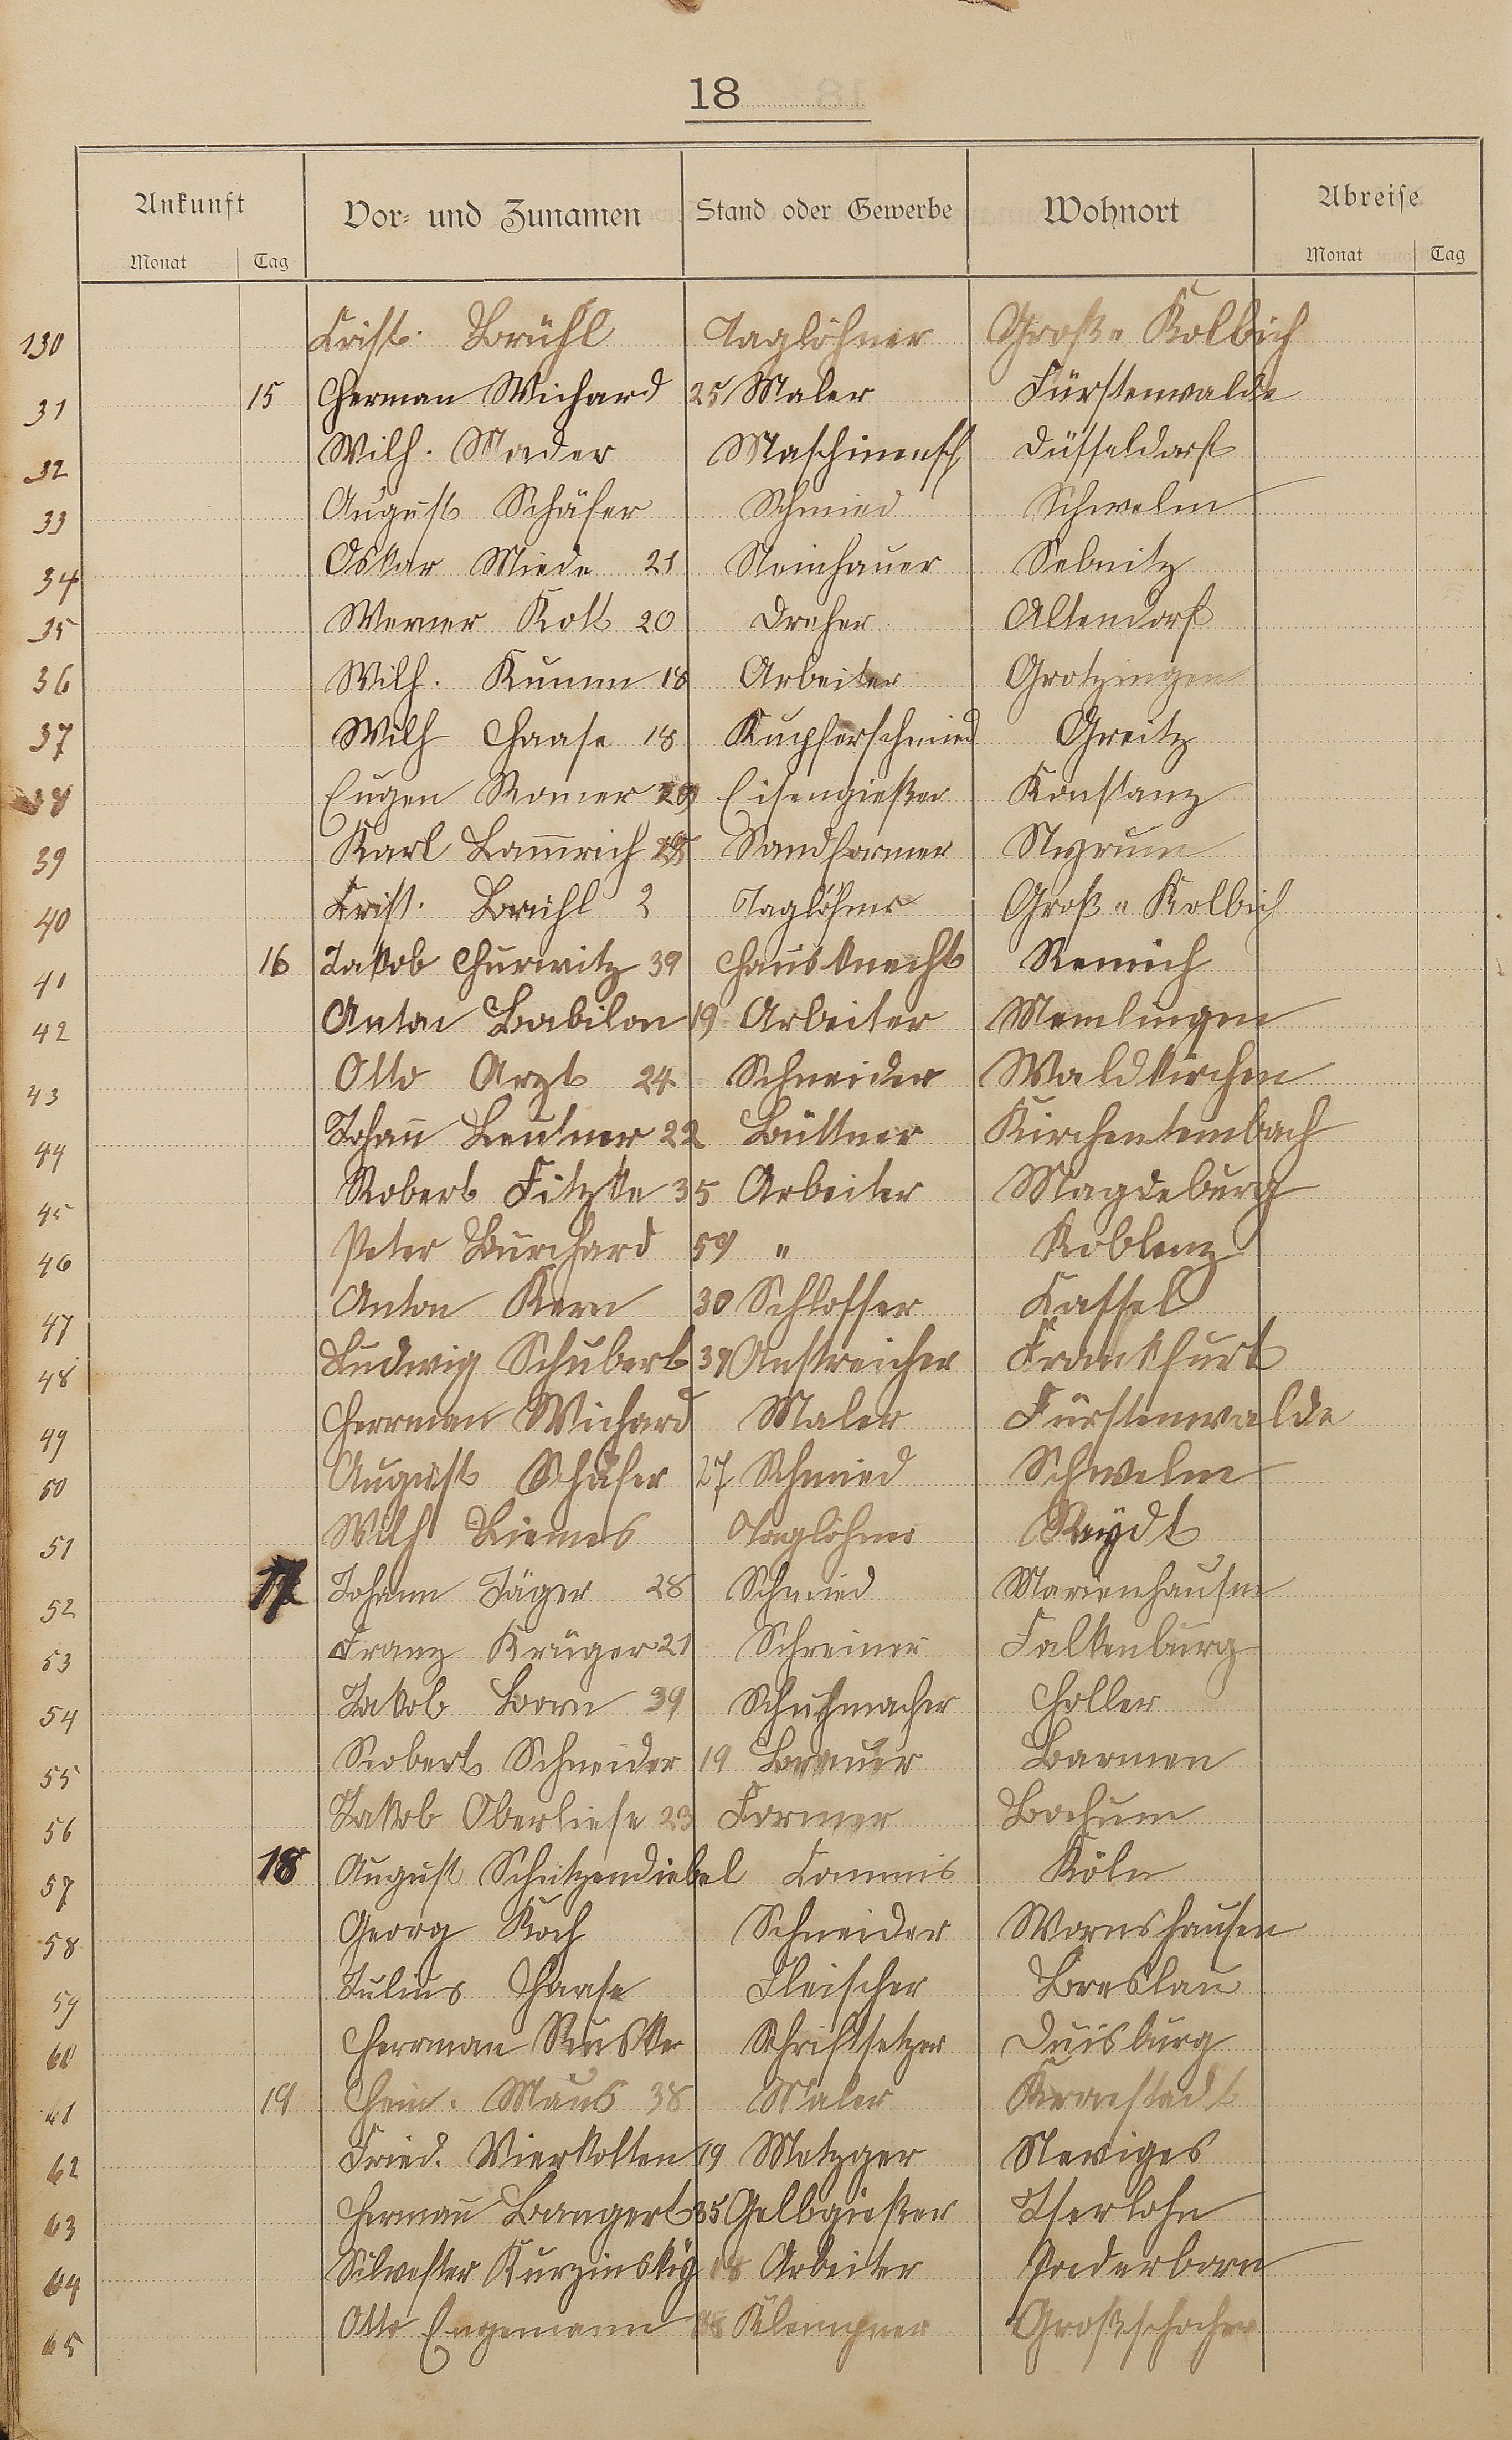 18
Ankunft Vor- und Zunamen Stand oder Gewerbe Wohnort Abreise
Monat Tag Monat Tag
130 Crist. Brühl Taglöhner Groß-Kolbich
31 15 Herman Wichard 25 Maler Fürstenwalde
32 Wilh. Mader Maschinensch Düsseldorf
33 August Schäfer Schmied Schwelm
34 Oskar Miede 21 Steinhauer Sebnitz
35 Werner Kott 20 Dreher Altendorf
36 Wilh. Kumm 18 Arbeiter Grotzingen
37 Wilh Haase 18 Kupferschmied Greitz
38 Eugen Romer 29 Eisengießer Konstanz
39 Karl Lam̄rich Sandformer Styrum
40 Crist. Brühl 2 Taglöhner Groß-Kolbich
41 16 Jakob Hurwitz 39 Hausknecht Remich
42 Anton Babilon 19 Arbeiter Memlingen
43 Otto Arzt 24 Schneider Waldkirchen
44 Johan̄ Leutner 22 Büttner Kirchentembach
45 Robert Fitzke 35 Arbeiter Magdeburg
46 Peter Burchard 59 " Koblenz
47 Anton Kern 30 Schlosser Cassel
48 Ludwig Schubert 37 Anstreicher Frankfurt
49 Herrman Wichard Maler Fürstenwalde
50 August Schäfer 27 Schmied Schwelm
51 Wilh Riemes Taglöhner Reydt
52 17 Johann Jäger 28 Schmied Marienhausen
53 Franz Krüger 21 Schreiner Falkenburg
54 Jakob Born 39 Schuhmacher Holler
55 Robert Schneider 19 Brauer Barmen
56 Jakob Oberliese 23 Former Bochum
57 18 August Schützendiebel Commis Köln
58 Georg Koch Schneider Wornshausen
59 Julius Haase Fleischer Breslau
60 Herrman Ruske Schriftsetzer Duisburg
61 19 Hein. Maus 38 Maler Kronstadt
62 Fried. Vierkotten 19 Metzger Neviges
63 Herman̄ Bangert 35 Gelbgießer Iserlohn
64 Silvester Kurzinsky 18 Arbeiter Paderborn
65 Otto Engemann 38 Klempner Großschocher